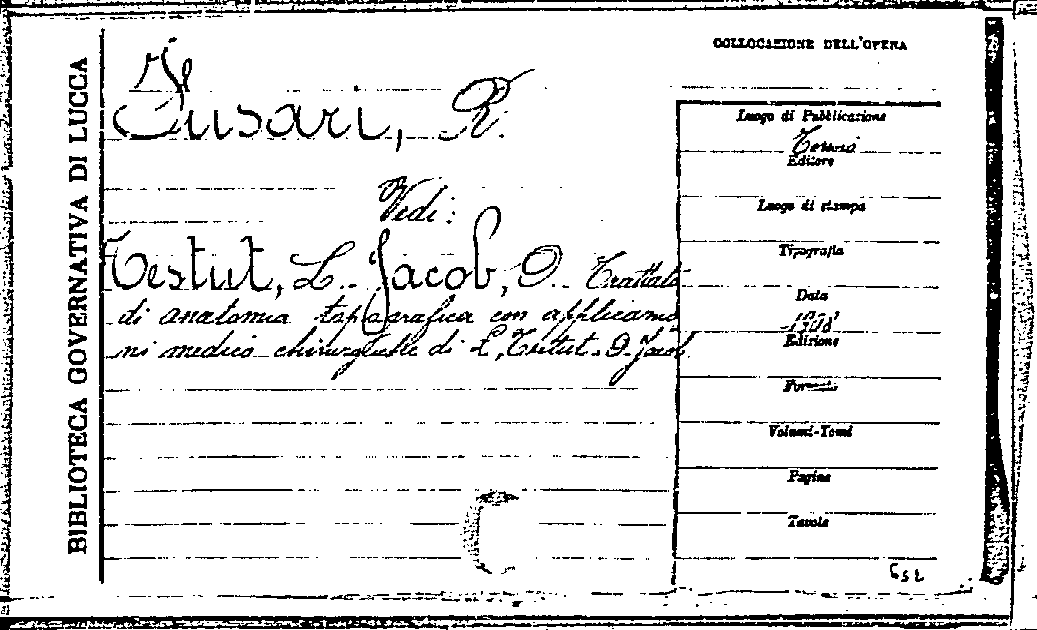 BIBLIOTECA GOVERNATIVA DI LUCCA
COLLOCAZIONE DELL'OPERA
Fusari, R.
Vedi:
Testut, L. Jacob, O. Trattato
di anatomia topografica con applicazio
ni medico chirurgiche di L. Testut. O. Jacob.
Luogo di Pubblicazione
Torino
Editore
Luogo di stampa
Tipografia
Data
Edizione
Formato
Volumi-Tomi
Pagine
Tavole